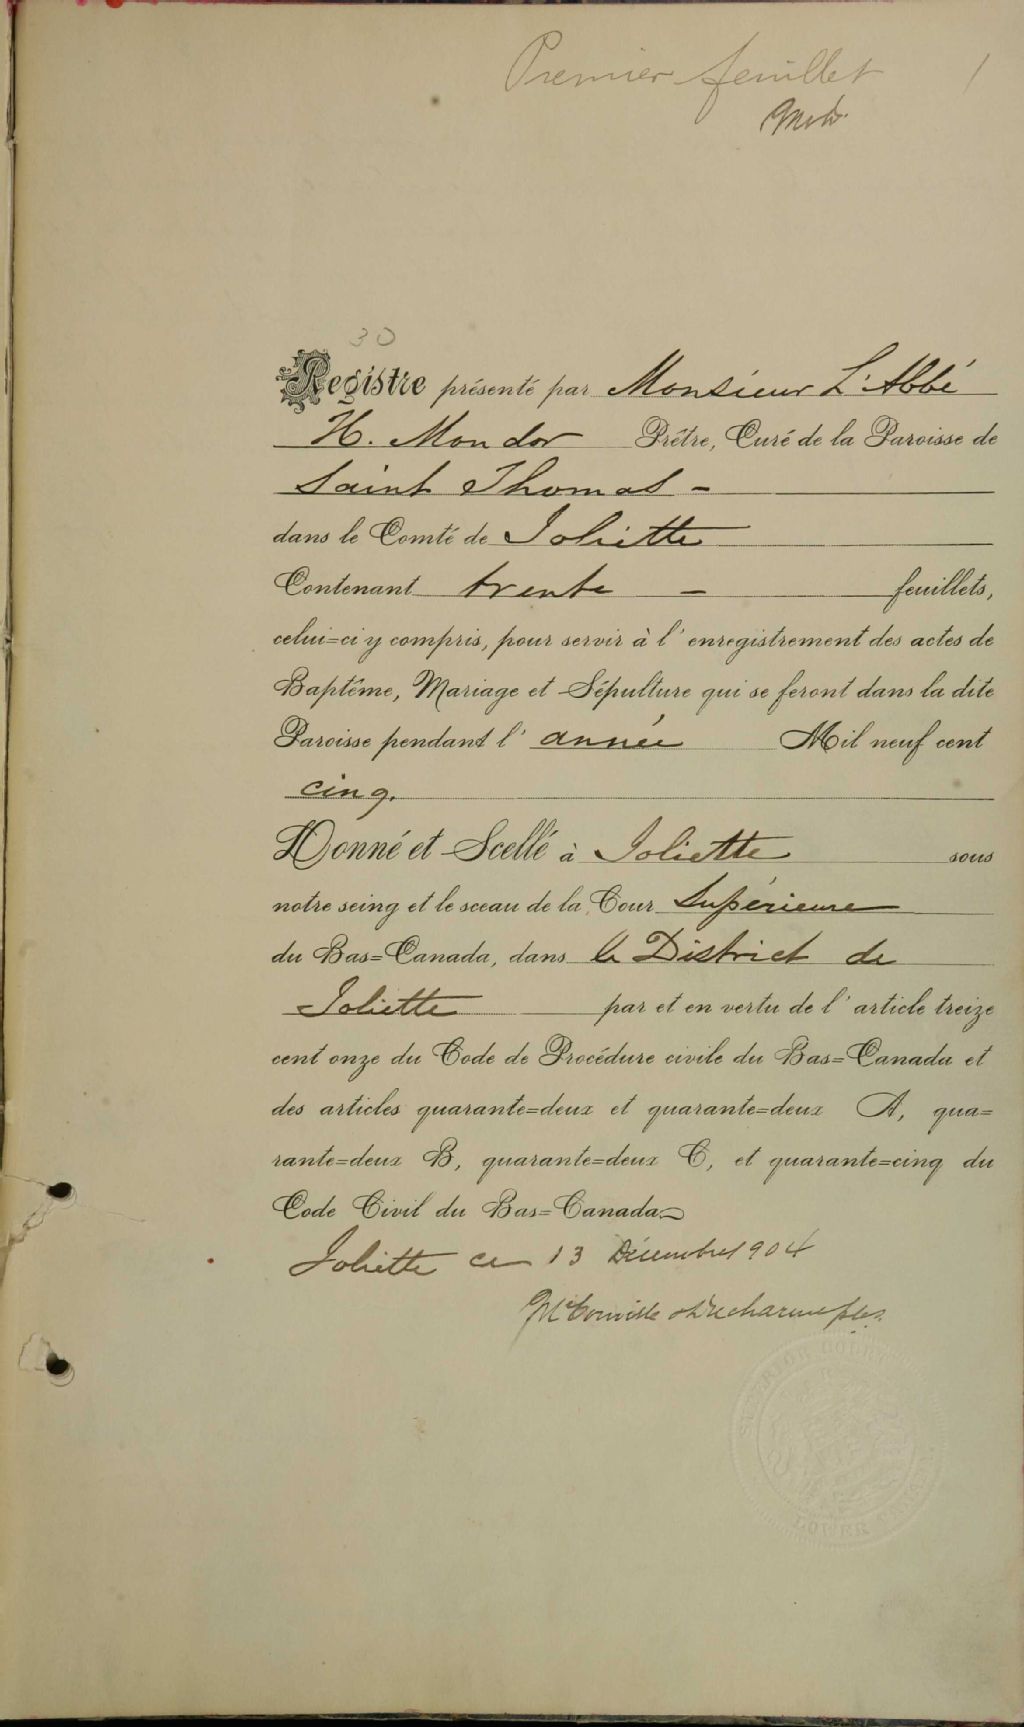 Premier feuillet 1
30
Registre présenté par Monsieur L'Abbé
H. Mondor Prêtre, Curé de la Paroisse de
Saint Thomas -
dans le Comté de Joliette
Contenant trente - feuillets,
celui=ci y compris, pour servir à l'enregistrement des actes de
Baptême, Mariage et Sépulture qui se feront dans la dite
Paroisse pendant l'année Mil neuf cent
cinq.
Donné et Scellé à Joliette sous
notre seing et le sceau de la Cour Supérieure
du Bas=Canada, dans le District de
Joliette par et en vertu de l'article treize
cent onze du Code de Procédure civile du Bas=Canada et
des articles quarante=deux et quarante=deux A, qua=
rante=deux B, quarante=deux C, et quarante=cinq du
Code Civil du Bas=Canada
Joliette ce 13 Décembre 1904
Desrochers
SUPERIOR COURT
LOWER CANADA